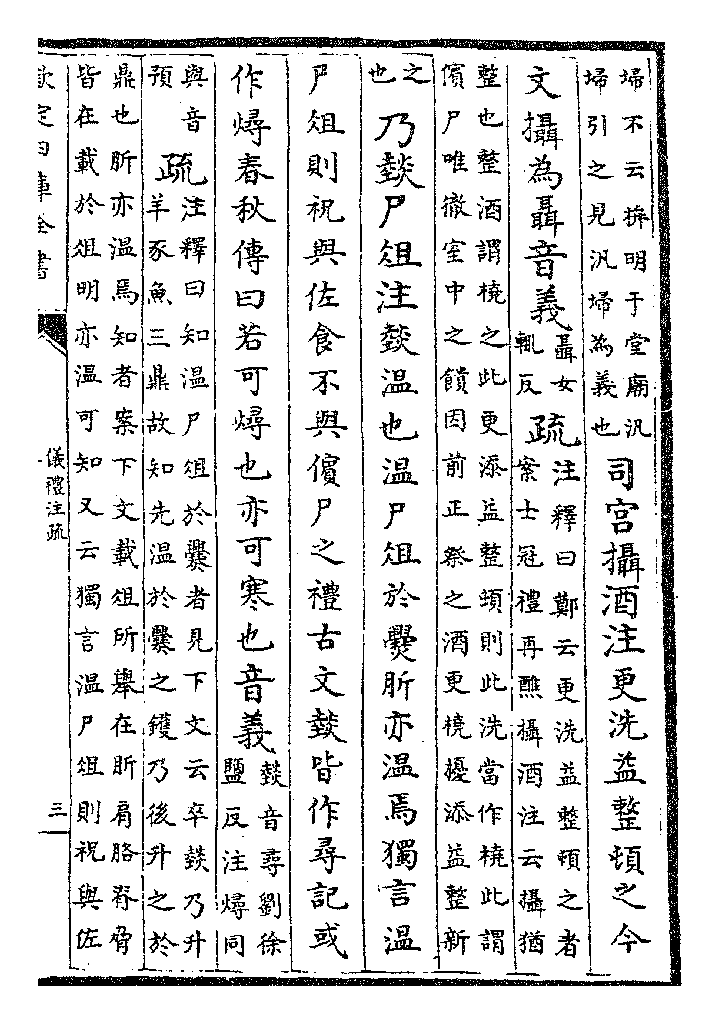 埽不云拚明于堂廟汎
埽引之見汎埽為義也
司宫攝酒注更洗益整頓之今
文攝為聶音義
聶女
輒反
疏
注釋曰鄭云更洗益整頓之者
案士冠禮再醮攝酒注云攝猶
整也整酒謂橈之此更添益整頓則此洗當作橈此謂
儐尸唯徹室中之饋因前正祭之酒更橈擾添益整新
之
也
乃燅尸俎注燅温也温尸俎於爨肵亦温焉獨言温
尸俎則祝與佐食不與儐尸之禮古文燅皆作尋記或
作燖春秋傳曰若可燖也亦可寒也音義
燅音尋劉徐
鹽反注燖同
與音
預
疏
注釋曰知温尸俎於爨者見下文云卒燅乃升
羊豕魚三鼎故知先温於爨之鑊乃後升之於
鼎也肵亦温焉知者案下文載俎所舉在肵肩胳脊脅
皆在載於俎明亦温可知又云獨言温尸俎則祝與佐
欽定四庫全書
儀禮注疏
三